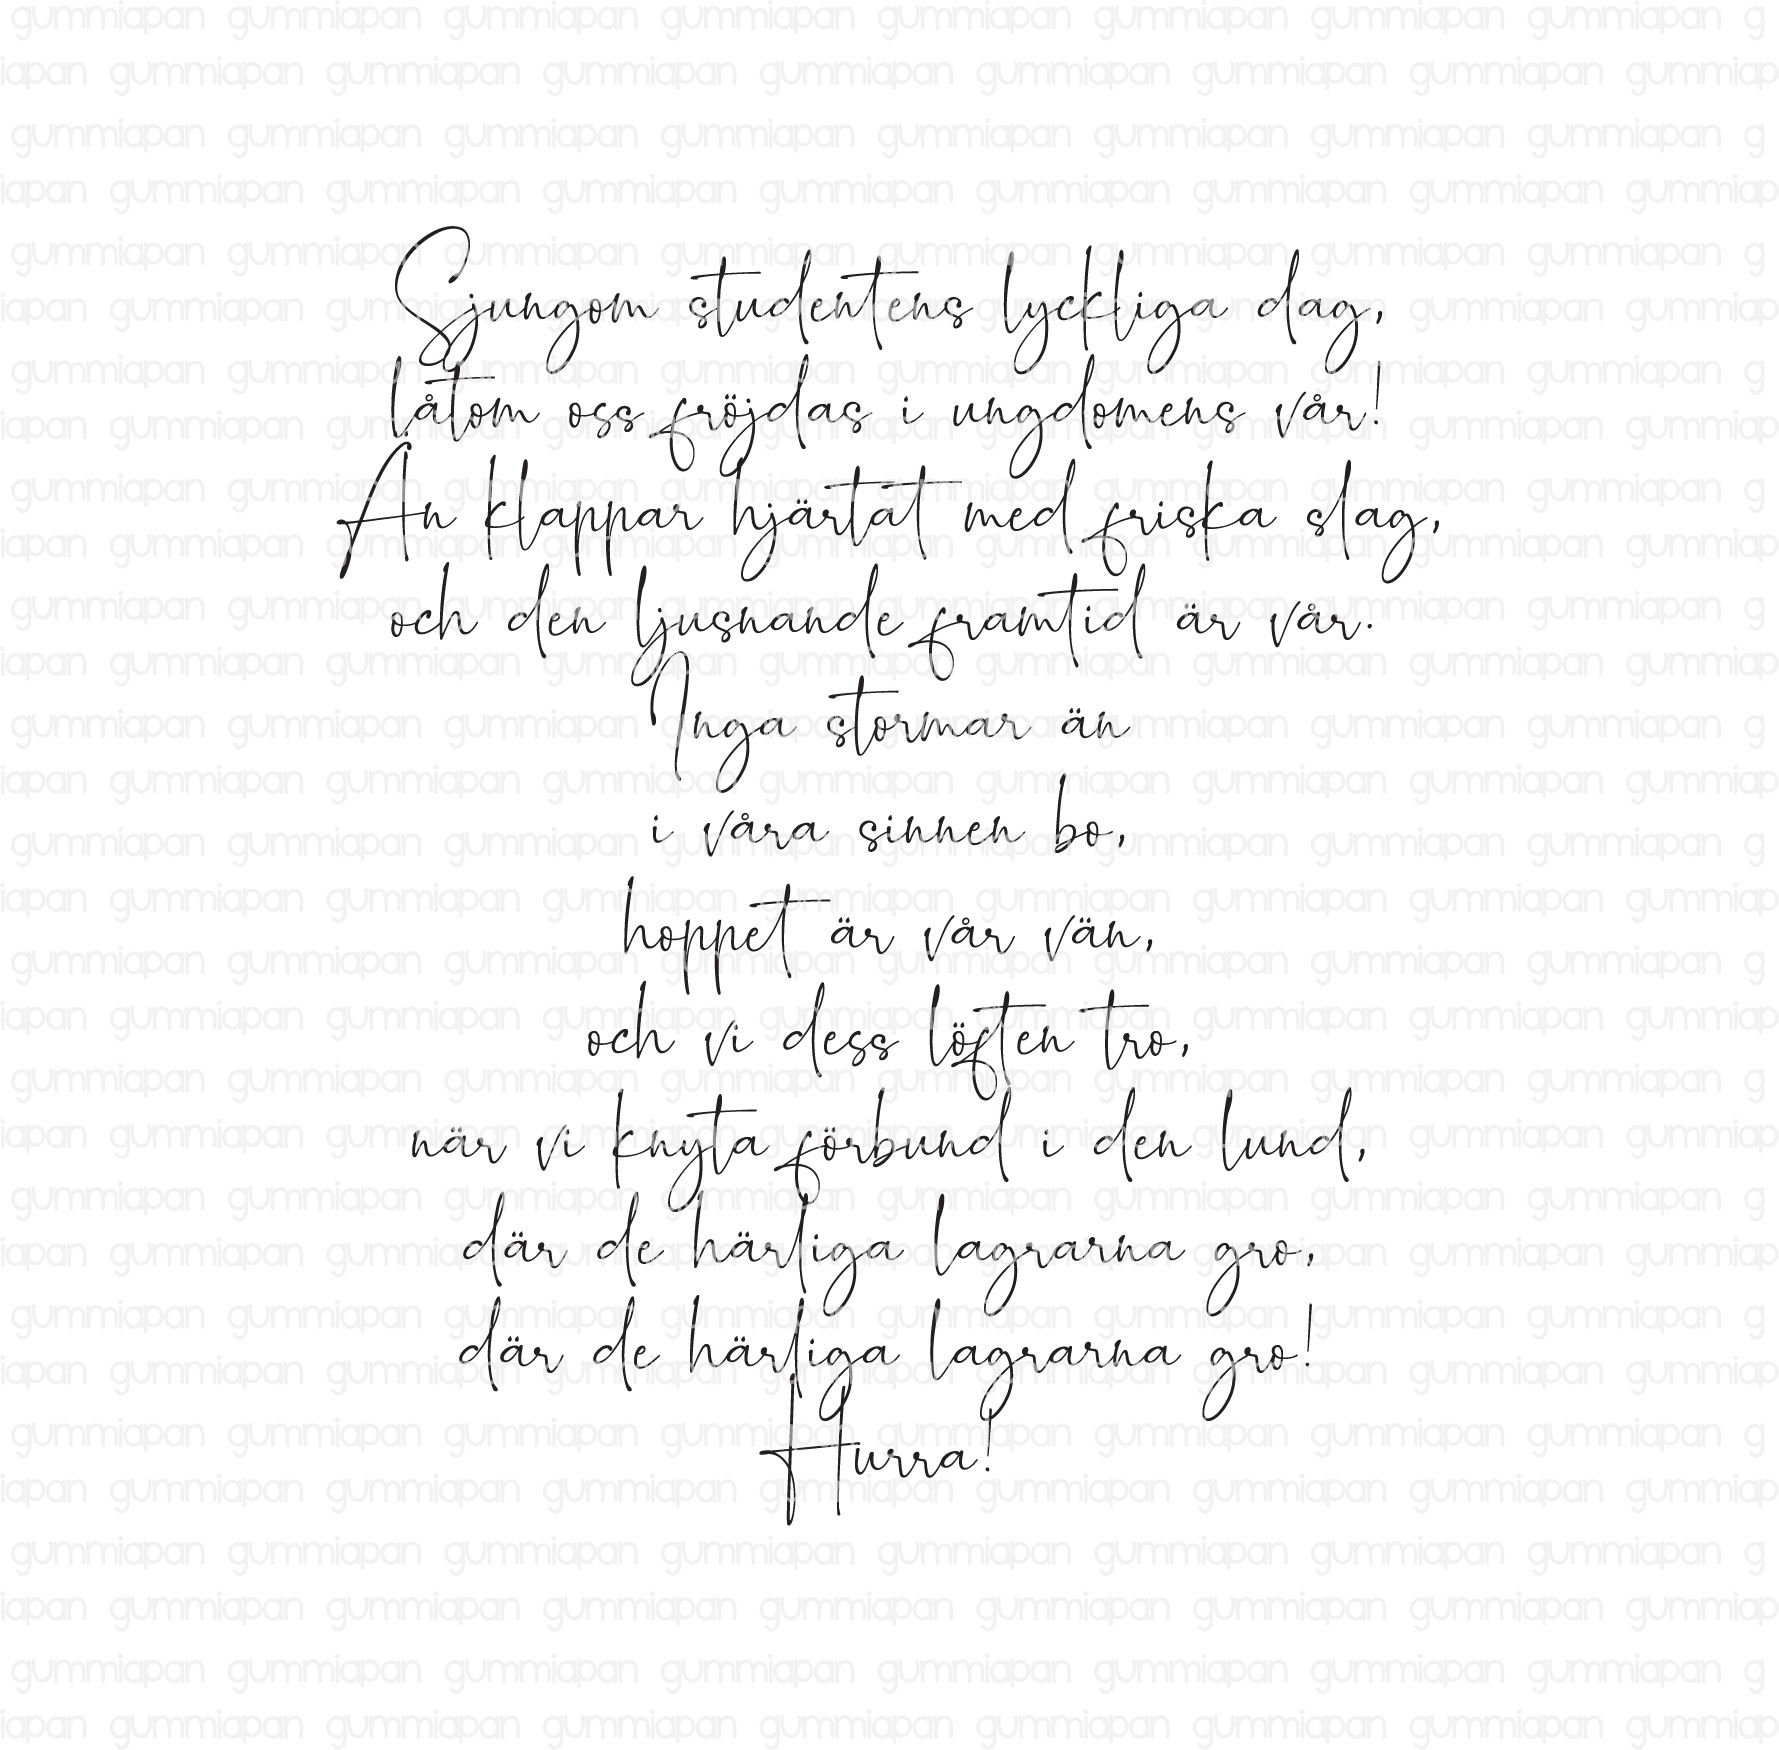 Sjungom studentens lyckliga dag,
låtom oss fröjdas i ungdomens vår!
Än klappar hjärtat med friska slag,
och den ljusnande framtid är vår.
Inga stormar än
i våra sinnen bo,
hoppet är vår vän,
och vi dess löften tro,
när vi knyta förbund i den lund,
där de härliga lagrarna gro,
där de härliga lagrarna gro!
Hurra!
gummiapan